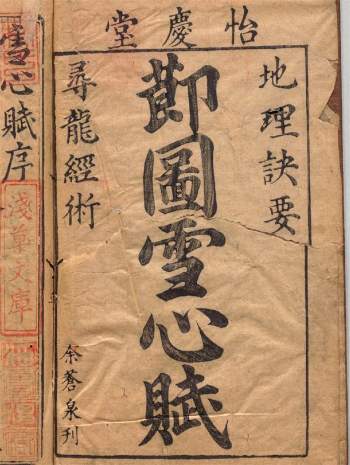 怡慶堂
地理訣要
節圖雪心賦
尋龍經術
余蒼泉刋
雪心賦序
淺草文庫